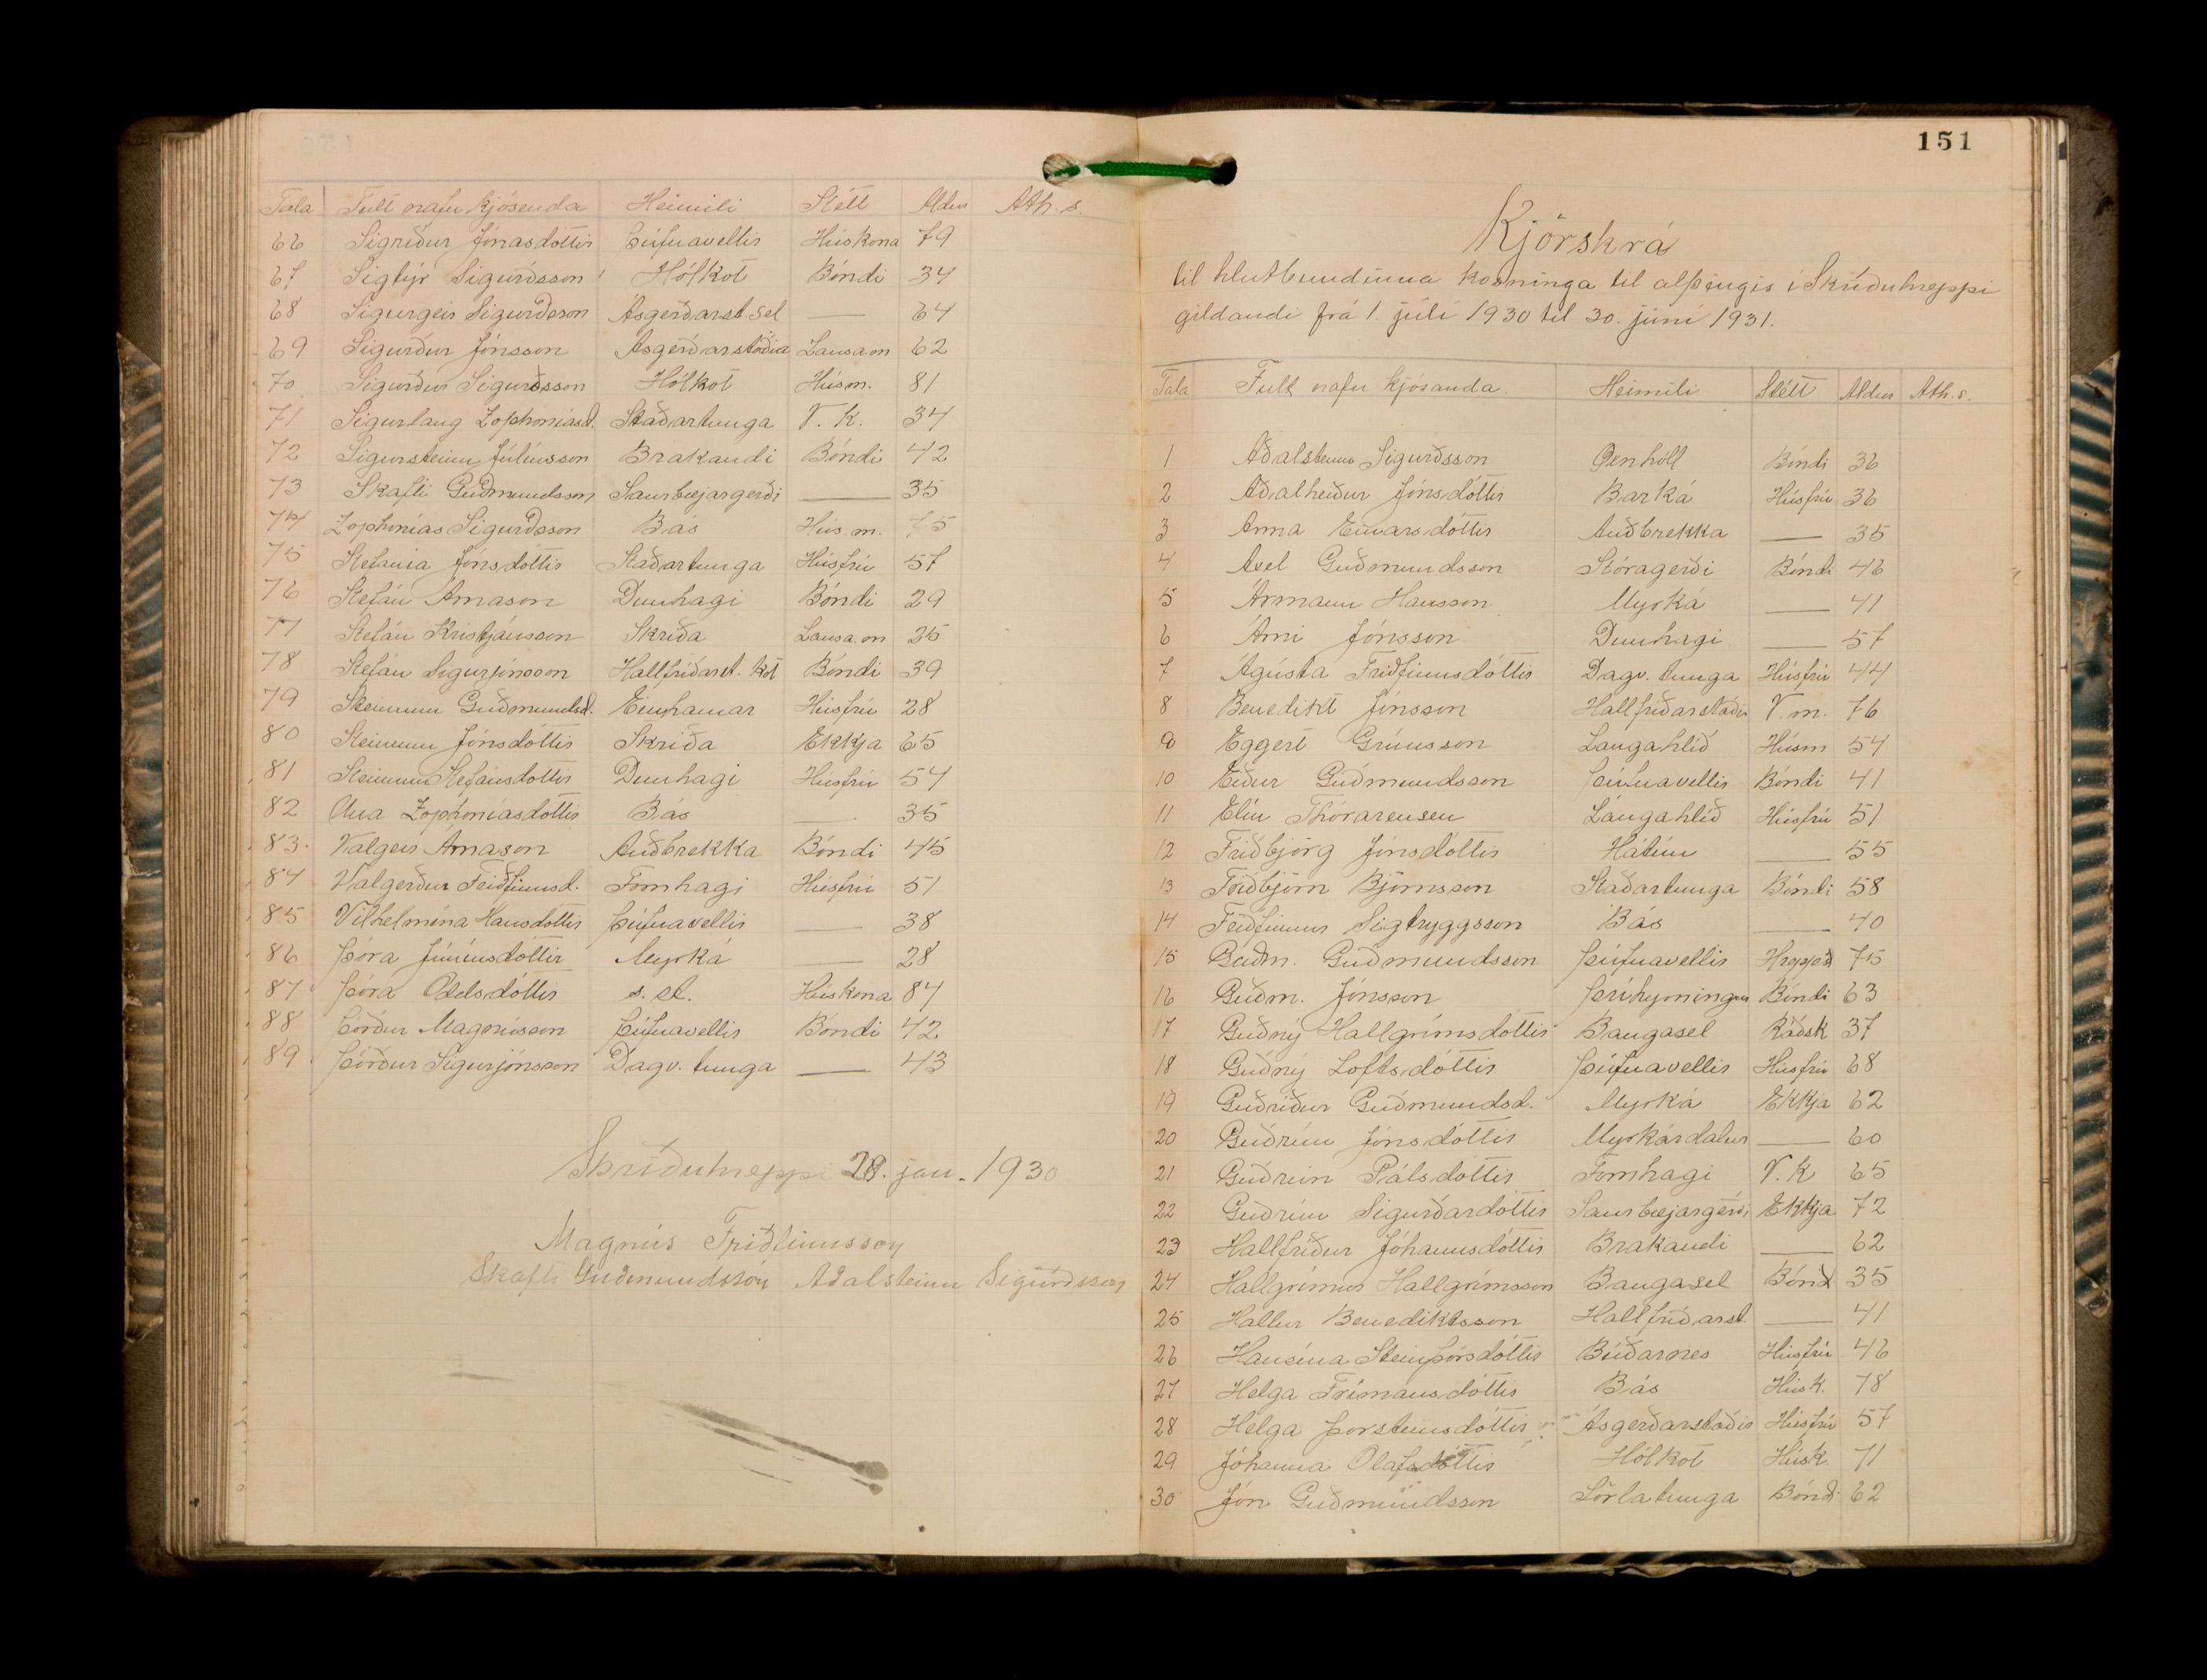 Tala Fult nafn kjósenda Heimili Stétt Aldur Ath.s.
66 Sigríður Jónasdóttir Þúfnavellir Húskona 79
67 Sigtýr Sigurðsson Hólkot Bóndi 34
68 Sigurgeir Sigurðsson Ásgerðarst.sel — 64
69 Sigurður Jónsson Ásgerðarstaðir Lausa.m 62
70 Sigurður Sigurðsson Hólkot Húsm. 81
71 Sigurlaug Zophoníasd. Staðartunga V.k. 34
72 Sigursteinn Júlíusson Brakandi Bóndi 42
73 Skafti Guðmundsson Saurbæjargerði — 35
74 Zophonías Sigurðsson Bás Hús m. 75
75 Stefanía Jónsdóttir Staðartunga Húsfrú 57
76 Stefán Árnason Dunhagi Bóndi 29
77 Stefán Kristjánsson Skriða Lausa.m 35
78 Stefán Sigurjónsson Hallfríðarst.kot Bóndi 39
79 Steinunn Guðmundsd. Einhamar Húsfrú 28
80 Steinunn Jónsdóttir Skriða Ekkja 65
81 Steinunn Stefánsdóttir Dunhagi Húsfrú 54
82 Una Zophoníasdóttir Bás — 35
83. Valgeir Árnason Auðbrekka Bóndi 45
84 Valgerður Friðfinnsd. Fornhagi Húsfrú 51
85 Vilhelmína Hansdóttir Þúfnavellir — 38
86 Þóra Júníusdóttir Myrká — 28
87 Þóra Oddsdóttir s.st. Húskona 84
88 Þórður Magnússon Þúfnavellir Bóndi 42
89 Þórður Sigurjónsson Dagv.tunga — 43
Skriðuhreppi 28. jan. 1930
Magnús Friðfinnsson
Skafti Guðmundsson Aðalsteinn Sigurðsson
151
Kjörskrá
til hlutbundinna kosninga til alþingis í Skriðuhreppi
gildandi frá 1. júlí 1930 til 30. júní 1931.
Tala Fult nafn kjósanda. Heimili Stétt Aldur Ath.s.
1 Aðalsteinn Sigurðsson Öxnhóll Bóndi 36
2 Aðalheiður Jónsdóttir Barká Húsfrú 36
3 Anna Einarsdóttir Auðbrekka — 35
4 Axel Guðmundsson Stóragerði Bóndi 46
5 Ármann Hansson Myrká — 41
6 Árni Jónsson Dunhagi — 57
7 Ágústa Friðfinnsdóttir Dagv.tunga Húsfrú 44
8 Benedikt Jónsson Hallfríðarstaðir V.m. 76
9 Eggert Grímsson Langahlíð Húsm 54
10 Eiður Guðmundsson Þúfnavellir Bóndi 41
11 Elín Thorarensen Langahlíð Húsfrú 51
12 Friðbjörg Jónsdóttir Hátún — 55
13 Friðbjörn Björnsson Staðartunga Bóndi 58
14 Friðfinnur Sigtryggsson Bás — 40
15 Guðm. Guðmundsson Þúfnavellir 75
16 Guðm. Jónsson Þríhyrningur Bóndi 63
17 Guðný Hallgrímsdóttir Baugasel Ráðsk 37
18 Guðný Loftsdóttir Þúfnavellir Húsfrú 68
19 Guðríður Guðmundsd. Myrká Ekkja 62
20 Guðrún Jónsdóttir Myrkárdalur — 60
21 Guðrún Pálsdóttir Fornhagi V.K 65
22 Guðrún Sigurðardóttir Saurbæjargerði Ekkja 72
23 Hallfríður Jóhannsdóttir Brakandi — 62
24 Hallgrímur Hallgrímsson Baugasel Bóndi 35
25 Hallur Benediktsson Hallfríðarst — 41
26 Hansína Steinþórsdóttir Búðarnes Húsfrú 46
27 Helga Frímannsdóttir Bás Húsk. 78
28 Helga Þorsteinsdóttir Ásgerðarstaðir Húsfrú 57
29 Jóhanna Ólafsdóttir Hólkot Húsk. 71
30 Jón Guðmundsson Sörlatunga Bóndi 62